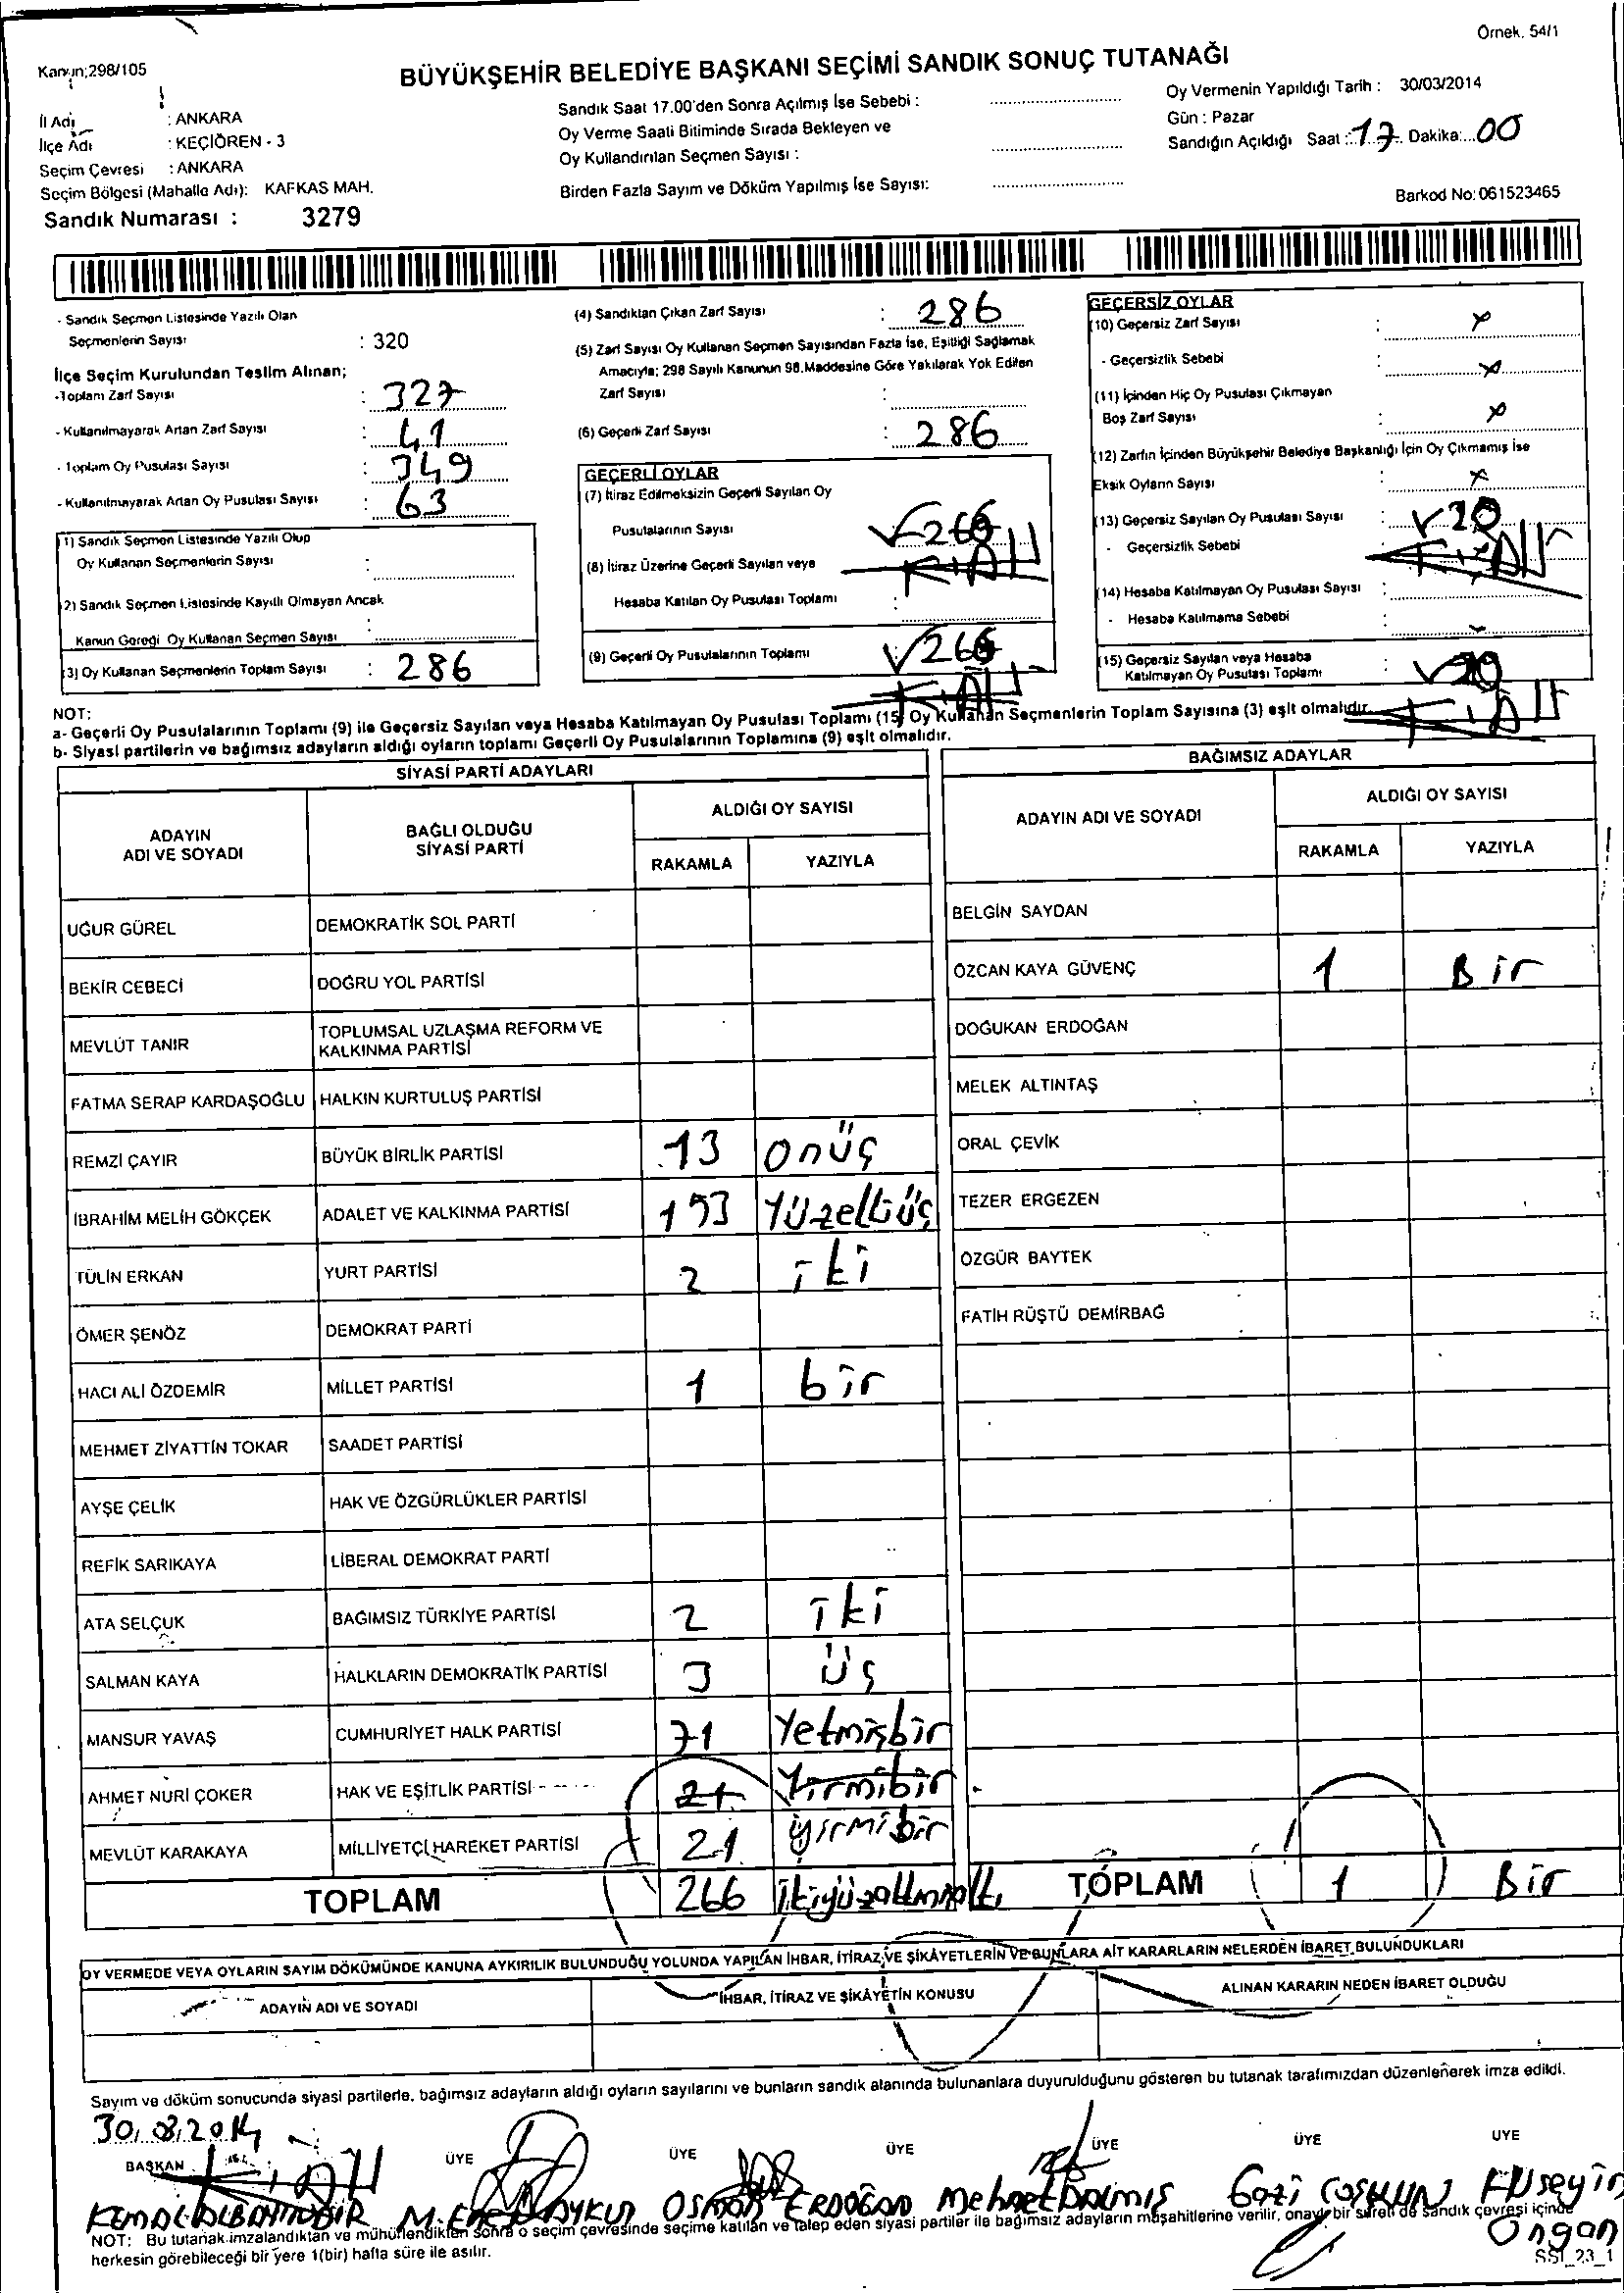 Örnek. 54/1
Kanun;298/105
BÜYÜKŞEHİR BELEDİYE BAŞKANI SEÇİMİ SANDIK SONUÇ TUTANAĞI
İl Adı : ANKARA
İlçe Adı : KEÇİÖREN - 3
Seçim Çevresi : ANKARA
Seçim Bölgesi (Mahalle Adı): KAFKAS MAH.
Sandık Numarası : 3279
Sandık Saat 17.00'den Sonra Açılmış İse Sebebi :
Oy Verme Saati Bitiminde Sırada Bekleyen ve
Oy Kullandırılan Seçmen Sayısı :
Birden Fazla Sayım ve Döküm Yapılmış İse Sayısı:
Oy Vermenin Yapıldığı Tarih : 30/03/2014
Gün : Pazar
Sandığın Açıldığı Saat : 17 Dakika: 00
Barkod No: 061523465
- Sandık Seçmen Listesinde Yazılı Olan
Seçmenlerin Sayısı : 320
İlçe Seçim Kurulundan Teslim Alınan;
-Toplam Zarf Sayısı : 327
- Kullanılmayarak Artan Zarf Sayısı : 41
- Toplam Oy Pusulası Sayısı : 349
- Kullanılmayarak Artan Oy Pusulası Sayısı : 63
(1) Sandık Seçmen Listesinde Yazılı Olup
Oy Kullanan Seçmenlerin Sayısı :
(2) Sandık Seçmen Listesinde Kayıtlı Olmayan Ancak
Kanun Gereği Oy Kullanan Seçmen Sayısı :
(3) Oy Kullanan Seçmenlerin Toplam Sayısı : 286
(4) Sandıktan Çıkan Zarf Sayısı : 286
(5) Zarf Sayısı Oy Kullanan Seçmen Sayısından Fazla İse, Eşitliği Sağlamak
Amacıyla; 298 Sayılı Kanunun 98.Maddesine Göre Yakılarak Yok Edilen
Zarf Sayısı :
(6) Geçerli Zarf Sayısı : 286
GEÇERLİ OYLAR
(7) İtiraz Edilmeksizin Geçerli Sayılan Oy
Pusulalarının Sayısı 266
(8) İtiraz Üzerine Geçerli Sayılan veya
Hesaba Katılan Oy Pusulası Toplamı :
(9) Geçerli Oy Pusulalarının Toplamı 266
GEÇERSİZ OYLAR
(10) Geçersiz Zarf Sayısı : x
- Geçersizlik Sebebi : x
(11) İçinden Hiç Oy Pusulası Çıkmayan
Boş Zarf Sayısı : x
(12) Zarfın İçinden Büyükşehir Belediye Başkanlığı İçin Oy Çıkmamış İse
Eksik Oyların Sayısı : x
(13) Geçersiz Sayılan Oy Pusulası Sayısı : 20
- Geçersizlik Sebebi
(14) Hesaba Katılmayan Oy Pusulası Sayısı :
- Hesaba Katılmama Sebebi :
(15) Geçersiz Sayılan veya Hesaba
Katılmayan Oy Pusulası Toplamı : 20
NOT:
a- Geçerli Oy Pusulalarının Toplamı (9) ile Geçersiz Sayılan veya Hesaba Katılmayan Oy Pusulası Toplamı (15) Oy Kullanan Seçmenlerin Toplam Sayısına (3) eşit olmalıdır.
b- Siyasi partilerin ve bağımsız adayların aldığı oyların toplamı Geçerli Oy Pusulalarının Toplamına (9) eşit olmalıdır.
SİYASİ PARTİ ADAYLARI
ADAYIN ADI VE SOYADI
BAĞLI OLDUĞU SİYASİ PARTİ
ALDIĞI OY SAYISI
RAKAMLA YAZIYLA
UĞUR GÜREL DEMOKRATİK SOL PARTİ
BEKİR CEBECİ DOĞRU YOL PARTİSİ
MEVLÜT TANIR TOPLUMSAL UZLAŞMA REFORM VE KALKINMA PARTİSİ
FATMA SERAP KARDAŞOĞLU HALKIN KURTULUŞ PARTİSİ
REMZİ ÇAYIR BÜYÜK BİRLİK PARTİSİ 13 onüç
İBRAHİM MELİH GÖKÇEK ADALET VE KALKINMA PARTİSİ 153 Yüzelliüç
TÜLİN ERKAN YURT PARTİSİ 2 iki
ÖMER ŞENÖZ DEMOKRAT PARTİ
HACI ALİ ÖZDEMİR MİLLET PARTİSİ 1 bir
MEHMET ZİYATTİN TOKAR SAADET PARTİSİ
AYŞE ÇELİK HAK VE ÖZGÜRLÜKLER PARTİSİ
REFİK SARIKAYA LİBERAL DEMOKRAT PARTİ
ATA SELÇUK BAĞIMSIZ TÜRKİYE PARTİSİ 2 iki
SALMAN KAYA HALKLARIN DEMOKRATİK PARTİSİ 3 üç
MANSUR YAVAŞ CUMHURİYET HALK PARTİSİ 71 Yetmişbir
AHMET NURİ ÇOKER HAK VE EŞİTLİK PARTİSİ 21 Yirmibir
MEVLÜT KARAKAYA MİLLİYETÇİ HAREKET PARTİSİ 21 yirmibir
TOPLAM 266 ikiyüzaltmışaltı
BAĞIMSIZ ADAYLAR
ADAYIN ADI VE SOYADI
ALDIĞI OY SAYISI
RAKAMLA YAZIYLA
BELGİN SAYDAN
ÖZCAN KAYA GÜVENÇ 1 Bir
DOĞUKAN ERDOĞAN
MELEK ALTINTAŞ
ORAL ÇEVİK
TEZER ERGEZEN
ÖZGÜR BAYTEK
FATİH RÜŞTÜ DEMİRBAĞ
TOPLAM 1 Bir
OY VERMEDE VEYA OYLARIN SAYIM DÖKÜMÜNDE KANUNA AYKIRILIK BULUNDUĞU YOLUNDA YAPILAN İHBAR, İTİRAZ VE ŞİKÂYETLERİN VE BUNLARA AİT KARARLARIN NELERDEN İBARET BULUNDUKLARI
ADAYIN ADI VE SOYADI İHBAR, İTİRAZ VE ŞİKÂYETİN KONUSU ALINAN KARARIN NEDEN İBARET OLDUĞU
Sayım ve döküm sonucunda siyasi partilerle, bağımsız adayların aldığı oyların sayılarını ve bunların sandık alanında bulunanlara duyurulduğunu gösteren bu tutanak tarafımızdan düzenlenerek imza edildi.
30.03.2014
BAŞKAN ÜYE ÜYE ÜYE ÜYE ÜYE ÜYE
OSMAN ERDOĞAN Mehmet DALMIŞ Gazi COŞKUN Hüseyin
Ongan
NOT: Bu tutanak imzalandıktan ve mühürlendikten sonra o seçim çevresinde seçime katılan ve talep eden siyasi partiler ile bağımsız adayların müşahitlerine verilir, onaylı bir sureti de sandık çevresi içinde
herkesin görebileceği bir yere 1(bir) hafta süre ile asılır.
SSI_23_1